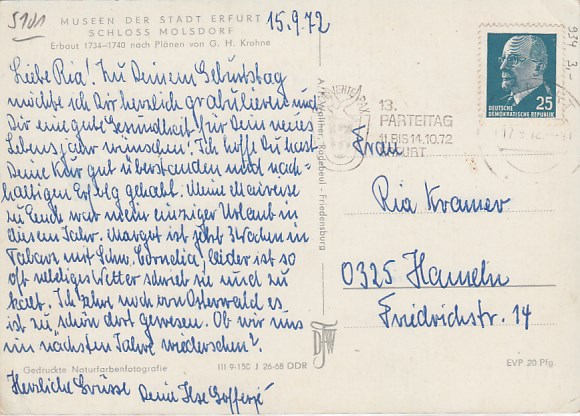 5101
MUSEEN DER STADT ERFURT
SCHLOSS MOLSDORF
Erbaut 1734–1740 nach Plänen von G. H. Krohne
15.9.72
Liebe Ria! Zu Deinem Geburtstag
möchte ich Dir herzlich gratulieren und
Dir eine gute Gesundheit für Dein neues
Lebensjahr wünschen. Ich hoffe Du hast
Deine Kur gut überstanden und nach-
haltigen Erfolg gehabt. Meine
zu Euch war mein einziger Urlaub in
diesem Jahr. Margot ist jetzt 3 Wochen in
Tabarz mit Schw. Cornelia, leider ist so
oft Wetter schrieb sie und zu
kalt. Ich noch von Osterwald es
ist zu schön dort gewesen. Ob wir uns
im nächsten Jahre wiedersehen?
Herzliche Grüsse Deine Ilse
Gedruckte Naturfarbenfotografie
III 9-150 J 26-68 DDR
A. R. Wallner, Radebeul-Friedensburg
13.
PARTEITAG
11. BIS 14.10.72
ERFURT
DEUTSCHE
DEMOKRATISCHE REPUBLIK
25
934 3,-
Frau
Ria Kramer
0325 Hameln
Friedrichstr. 14
EVP 20 Pfg.